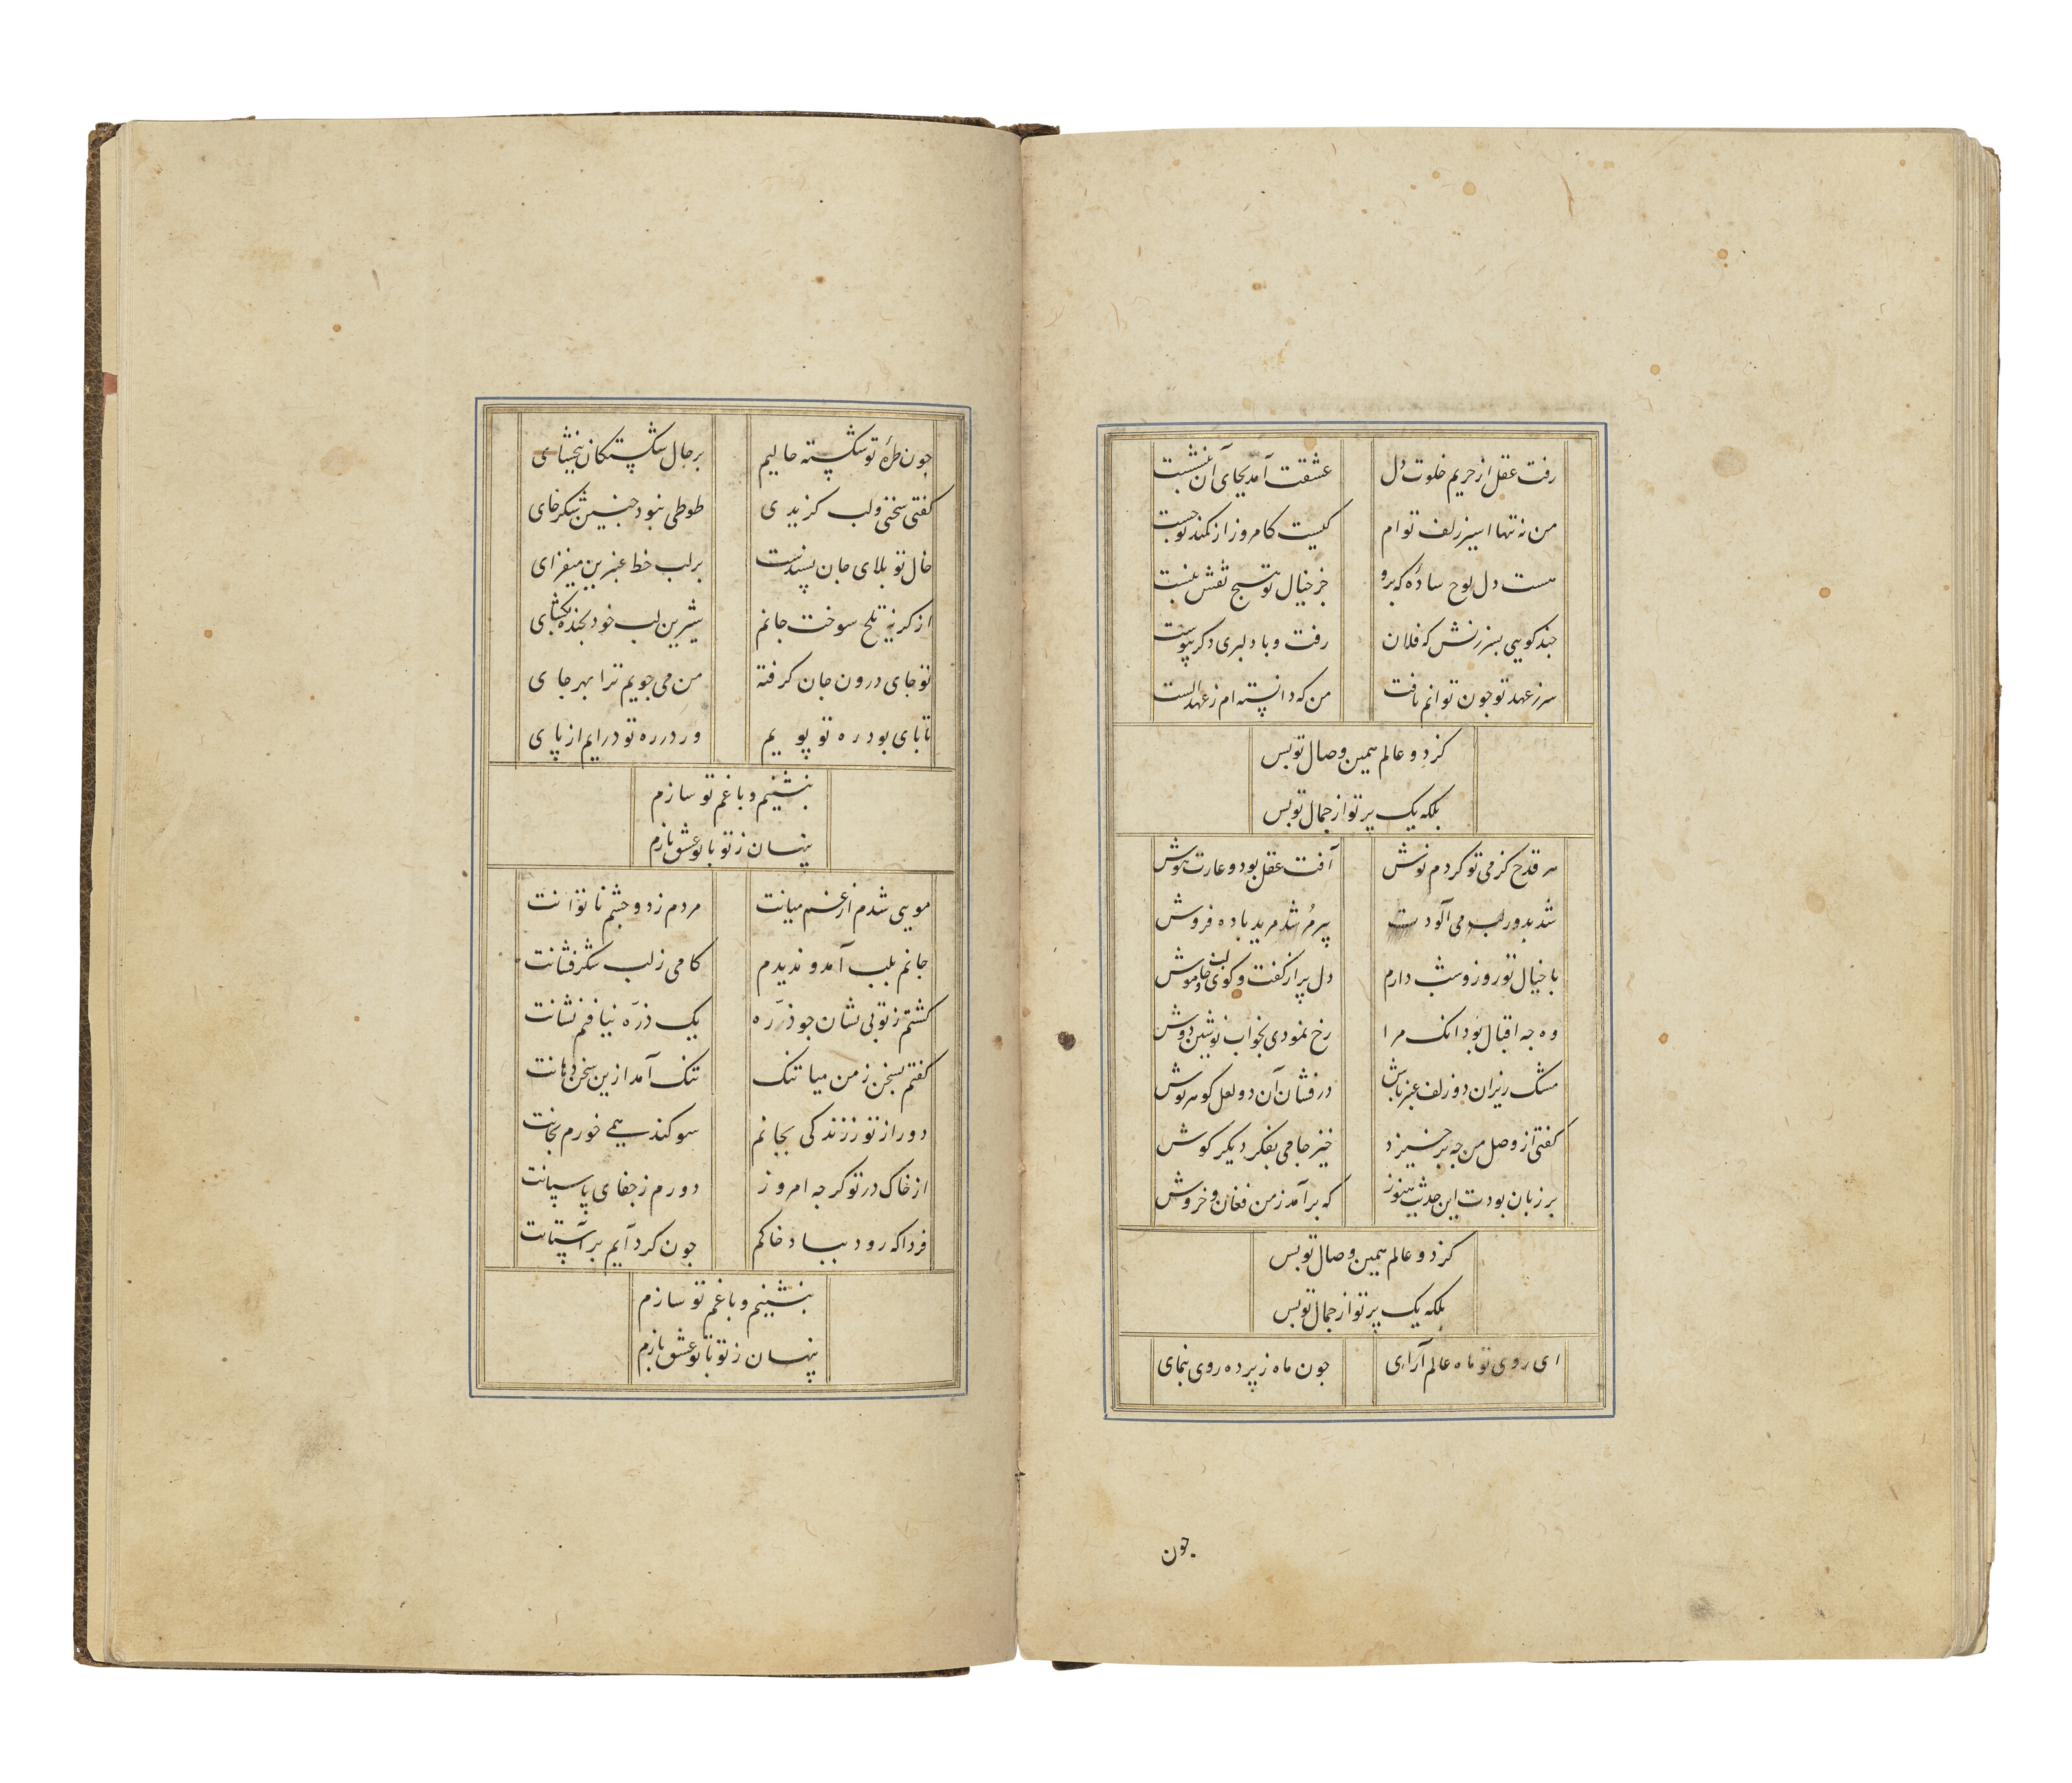 رفت عقل از حریم خلوت دل عشقت آمد بجای آن بنشست
من نه تنها اسیر زلف توام کیست کامروز از کمند تو جست
هست دل لوح ساده که برو جز خیال تو هیچ نقش نبست
جند کویی بسرزنش که فلان رفت و با دلبری دکر پیوست
سر ز عهد تو جون توانم تافت من که دانسته ام ز عهد الست
کز دو عالم همین وصال تو بس
بلکه یک پرتو از جمال تو بس
هر قدح کز می تو کردم نوش آفت عقل بود و غارت هوش
شد بدور لب می آلودت پیر مرشد مرید باده فروش
با خیال تو روز و شب دارم دل پر از کفت و کوی لب خاموش
وه جه اقبال بود انک مرا رخ نمودی بخواب نوشین دوش
مشک ریزان دو زلف عنبر پاش درفشان آن دو لعل کوهرپوش
کفتی از وصل من جه برخیزد خیز جامی بفکر دیکر کوش
بر زبان بودت این حدیث هنوز که برآمد ز من فغان و خروش
کز دو عالم همین وصال تو بس
بلکه یک پرتو از جمال تو بس
ای روی تو ماه عالم آرای جون ماه ز پرده روی بنمای
جون
جون طرهٔ تو شکسته حالیم بر حال شکستکان ببخشای
کفتی سخنی و لب کزیدی طوطی نبود جنین شکرخای
خال تو بلای جان پسندست بر لب خط عنبرین میفزای
از کریهٔ تلخ سوخت جانم شیرین لب خود بخنده بکشای
تو جای درون جان کرفته من می جویم ترا بهر جای
تا پای بود ره تو پویم ور در ره تو درایم از پای
بنشینم و با غم تو سازم
پنهان ز تو با تو عشق بازم
مویی شدم از غم میانت مردم ز دو جشم ناتوانت
جانم بلب آمد و ندیدم کامی ز لب شکرفشانت
کشتم ز تو بی نشان جو ذره یک ذره نیافتم نشانت
کفتم بسخن ز من میا تنک تنک آمد ازین سخن دهانت
دور از تو ز زندکی بجانم سوکند همی خورم بجانت
از خاک در تو کرجه امروز دورم ز جفای پاسبانت
فردا که رود بباد خاکم جون کرد آیم بر آستانت
بنشینم و با غم تو سازم
پنهان ز تو با تو عشق بازم